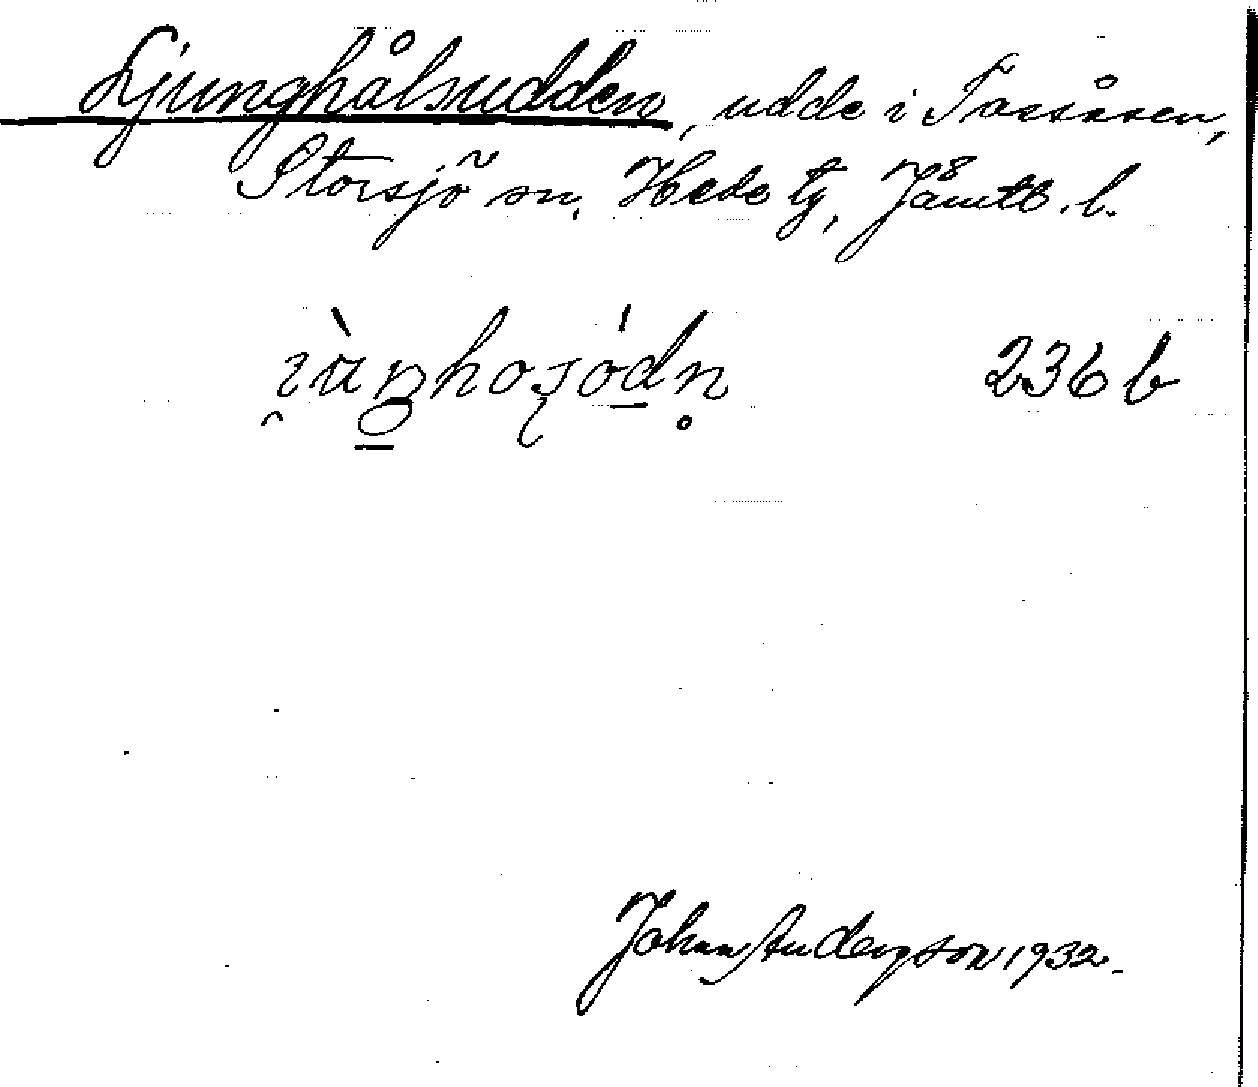 Ljunghålsudden, udde i Tossåsen,
Storsjö sn. Hede tg, Jämtl. l.
236 b
Johan Anderson 1932.